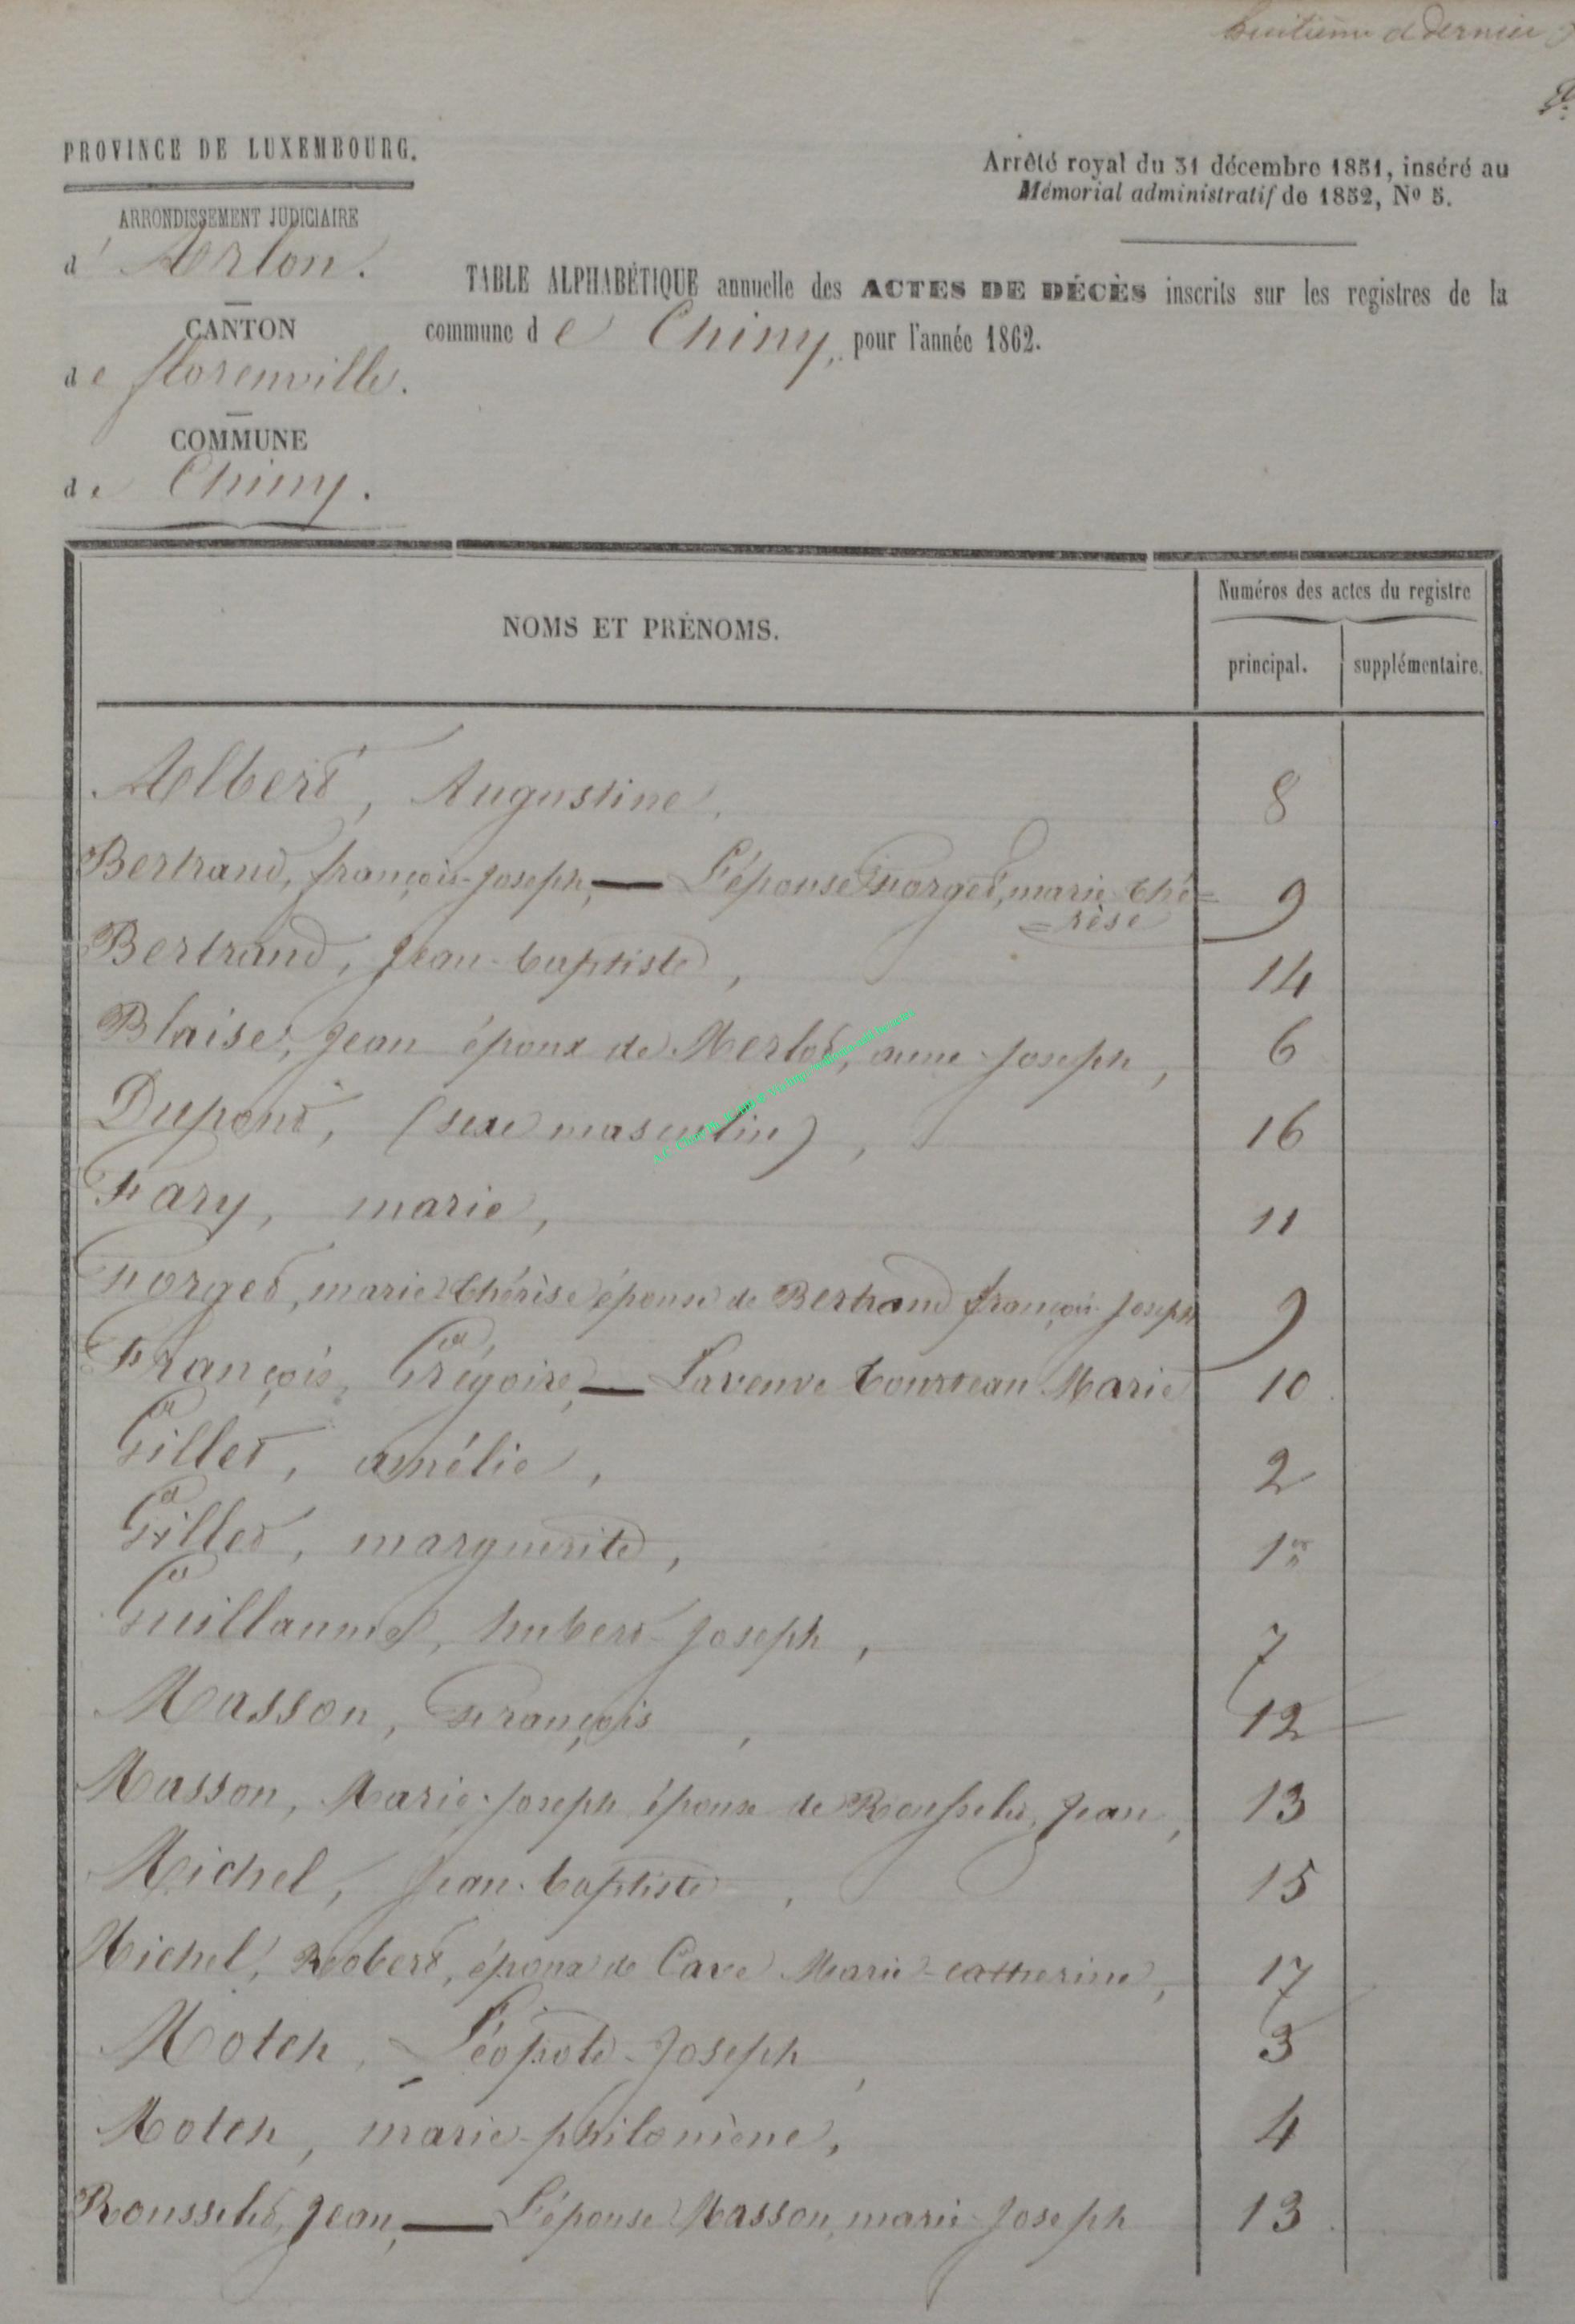 huitième et dernier
PROVINCE DE LUXEMBOURG.
ARRONDISSEMENT JUDICIAIRE
d' Arlon.
CANTON
de florenville.
COMMUNE
de Chiny.
Arrêté royal du 31 décembre 1851, inséré au
Mémorial administratif de 1852, No 5.
TABLE ALPHABÉTIQUE annuelle des ACTES DE DÉCÈS inscrits sur les registres de la
commune de Chiny, pour l'année 1862.
NOMS ET PRÉNOMS.
Numéros des actes du registre
principal.
supplémentaire.
Albert, Augustine, 8
Bertrand, françois-Joseph, — L'épouse Forget, marie thé= 9
=rèse
Bertrand, Jean-baptiste, 14
Blaise, Jean époux de Merlot, anne-Joseph, 6
Dupont, (sexe masculin), 16
Fary, marie, 11
Forget, marie thérèse épouse de Bertrand françois-Joseph 9
François, Grégoire, — La veuve Marie 10
Gillet, amélie, 2
Gillet, marguerite, 1er
Guillaume, hubert-Joseph, 7
Masson, François, 12
Masson, Marie-Joseph épouse de Rousselet, Jean, 13
Michel, Jean-baptiste, 15
Michel, Robert, époux de Cave Marie-catherine, 17
Motch, Léopold-Joseph, 3
Motch, marie-philomène, 4
Rousselet, Jean, — L'épouse Masson, marie-Joseph 13